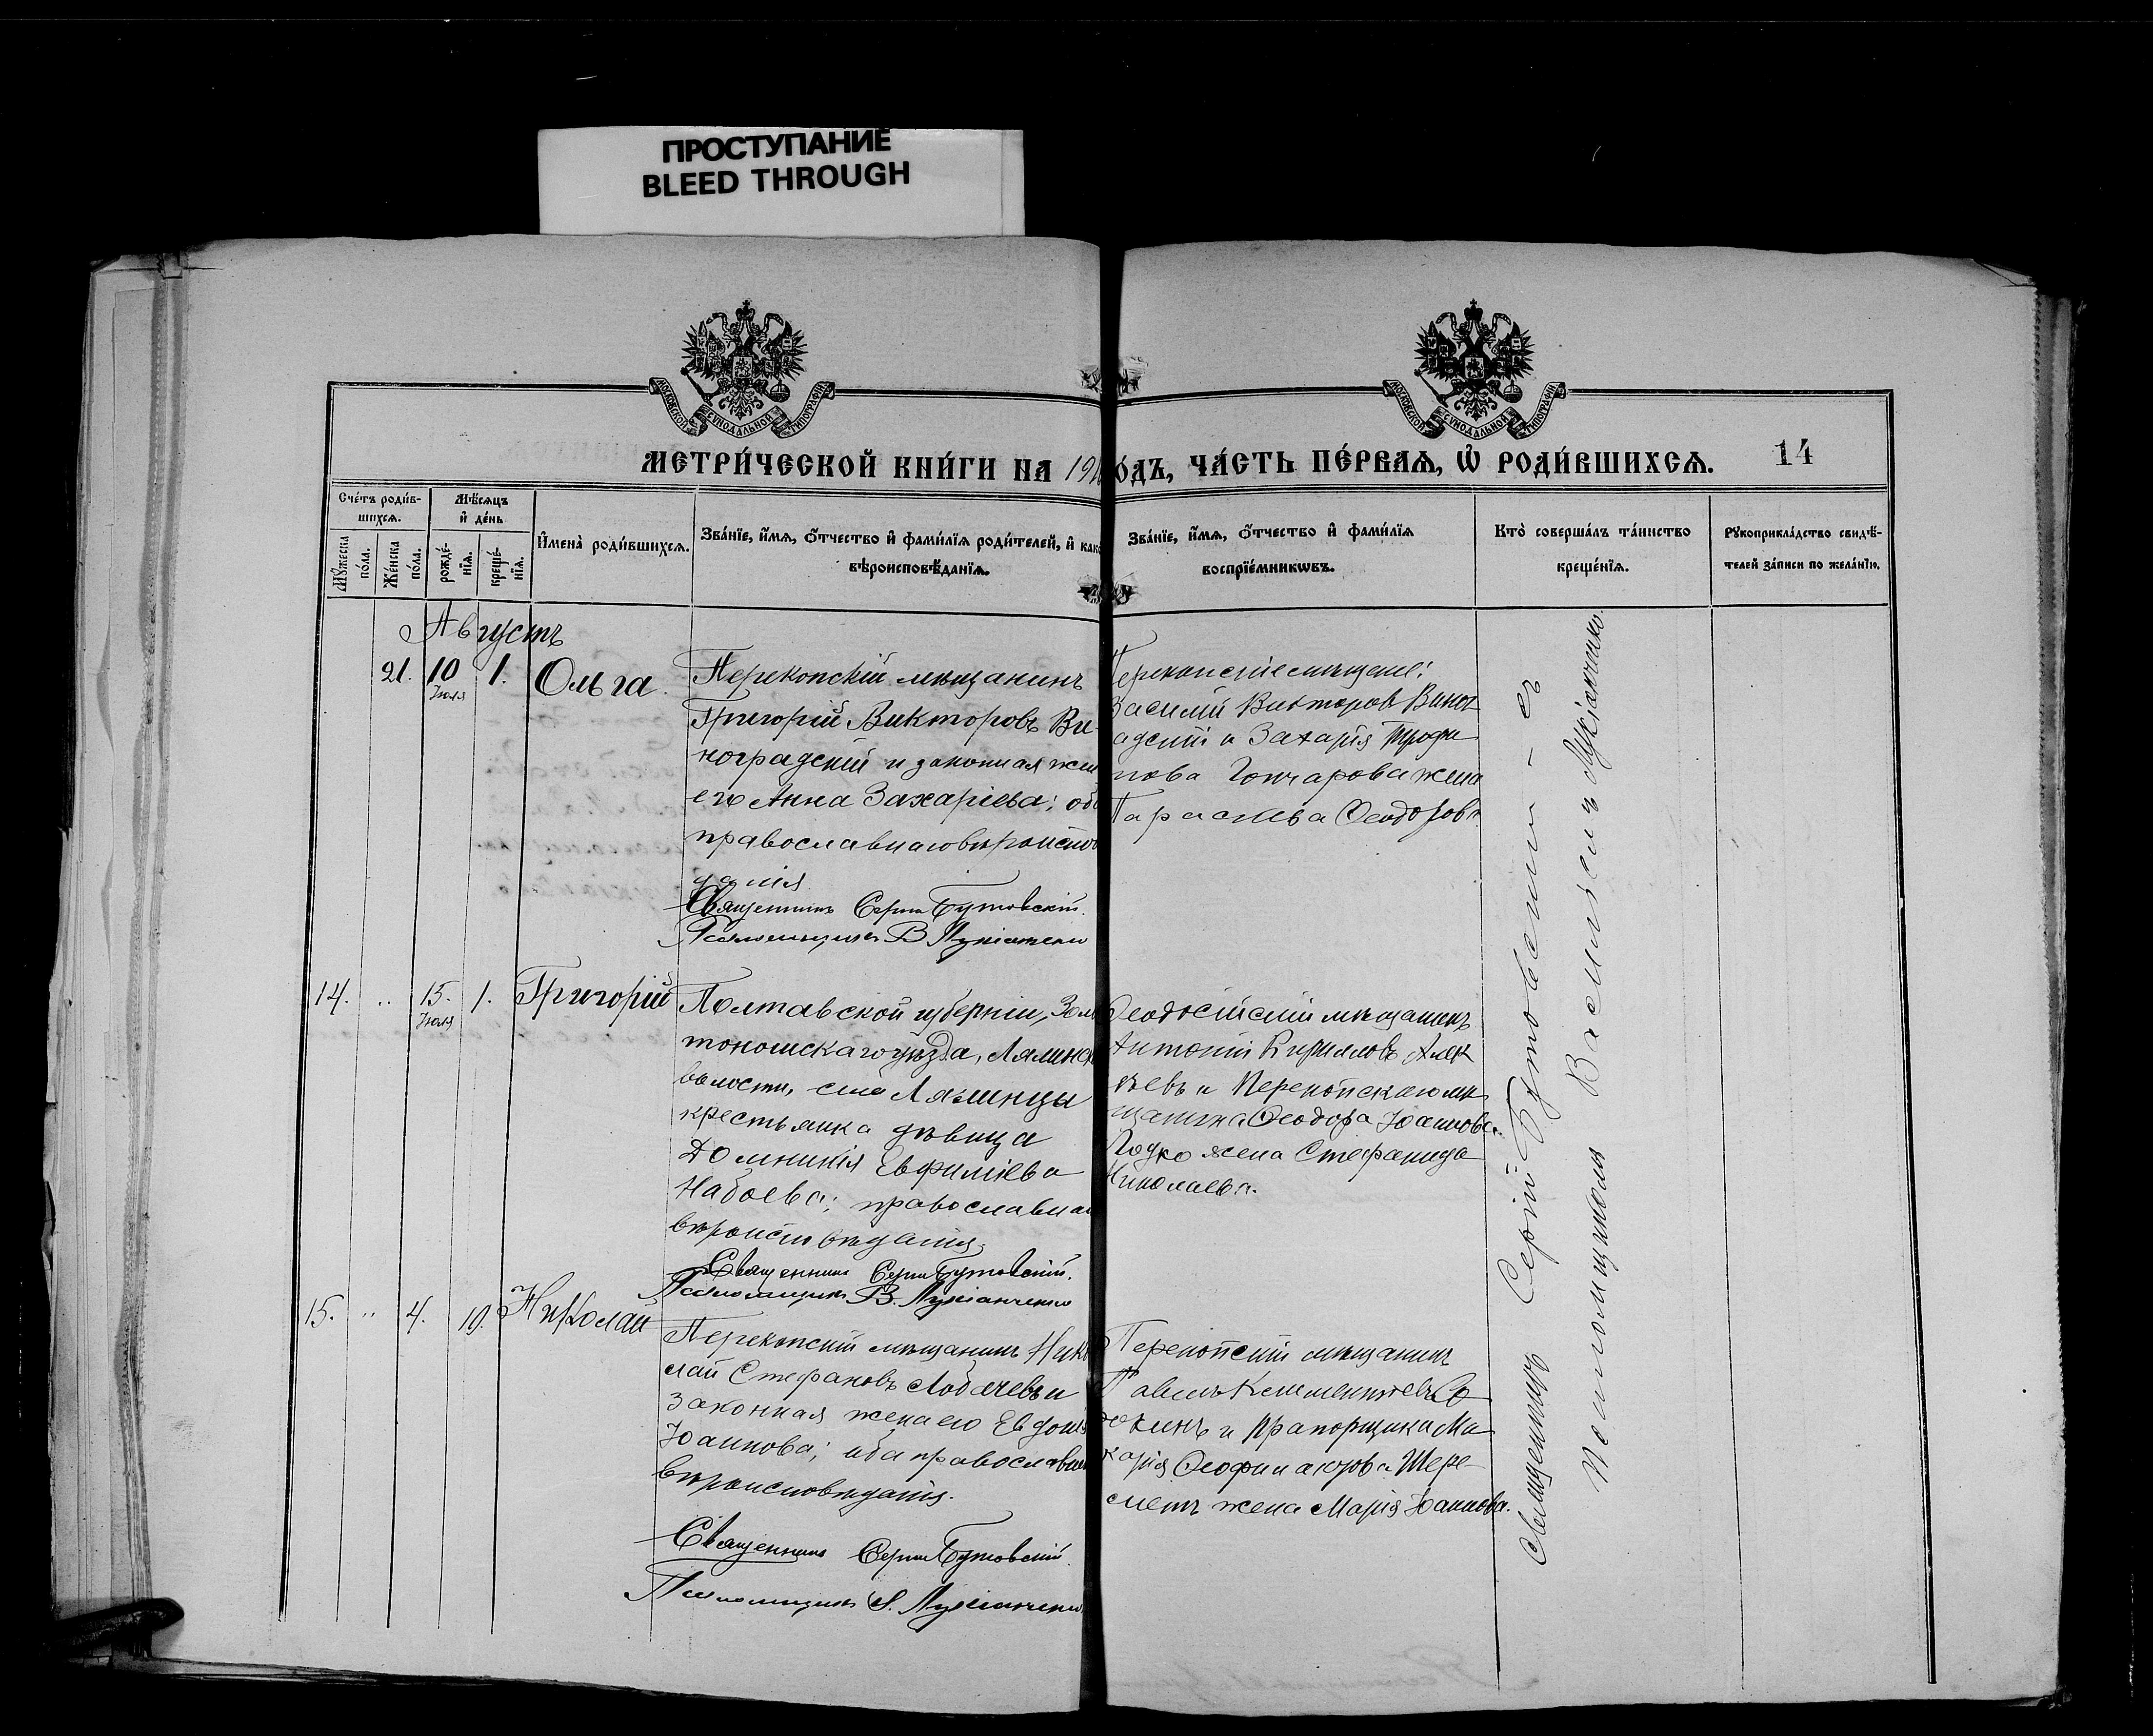 ПРОСТУПАНИЕ
BLEED THROUGH
МОСКОВСКОЙ СУНОДАЛЬНОЙ ТИПОГРАФІИ
МОСКОВСКОЙ СУНОДАЛЬНОЙ ТИПОГРАФІИ
МЕТРИ́ЧЕСКОЙ КНИ́ГИ НА 191 О́ДЪ, ЧА́СТЬ ПЕ́РВАЯ, Ѿ РОДИ́ВШИХСЯ. 14
Сче́тъ роди́в-
шихся.
Мѣ́сяцъ
и҆ де́нь
Мꙋ́жеска по́ла.
Же́нска по́ла.
рожде́-нїя.
креще́-нїя.
И҆мена̀ роди́вшихся.
Зва́нїе, и҆́мя, ѻ҆́тчество и҆ фами́лїя роди́телей, и҆ како
вѣроисповѣ́данїя.
Зва́нїе, и҆́мя, ѻ҆́тчество и҆ фами́лїя
воспрїе́мникѡвъ.
Кто̀ соверша́лъ та́инство
креще́нїя.
Рꙋкоприкла́дство свидѣ́-
телей за́писи по жела́нїю.
Августъ
21. 10 Іюля 1. Ольга.
Перекопскій мѣщанинъ
Григорій Викторовъ Ви-
ноградскій и законная жен
его Анна Захаріева; об
православнаго вѣроиспов
данія
Священникъ Сергій Бутовскій.
Псаломщикъ В Лукіанченко
Перекопскіе мѣщане:
Василій Викторовъ Виног
адскій и Захарія Трофи
мова Гончарова жена
Параскева Ѳеодорова
14. " 15. Іюля 1. Григорій
Полтавской губерніи, Золо
тоношскаго уѣзда, Лялинс
волости, села Лялинцы
крестьянка дѣвица
Домникія Евфиміева
Набоева; православна
вѣроисповѣданія.
Священникъ Сергій Бутовскій.
Псаломщикъ В. Лукіанченко
Ѳеодосійскій мѣщанинъ
Антоній Кирилловъ
и Перекопскаго мѣ
щанина Ѳеодора Іоаннова
жена Стефанида
Николаева.
15. " 4. 10. Николай
Перекопскій мѣщанинъ Нико
лай Стефановъ Лобачевъ и
законная жена его Евдок
Іоаннова; оба православн
вѣроисповѣданія.
Священникъ Сергій Бутовскій
Псаломщикъ В. Лукіанченко
Перекопскій мѣщанинъ
Павелъ Климентьевъ
и прапорщика Ма
карія Ѳеофилактова Шере-
метъ жена Марія Іоаннова.
Священникъ Сергій Бутовскій - съ
Псаломщикомъ Василіемъ Лукіанченко